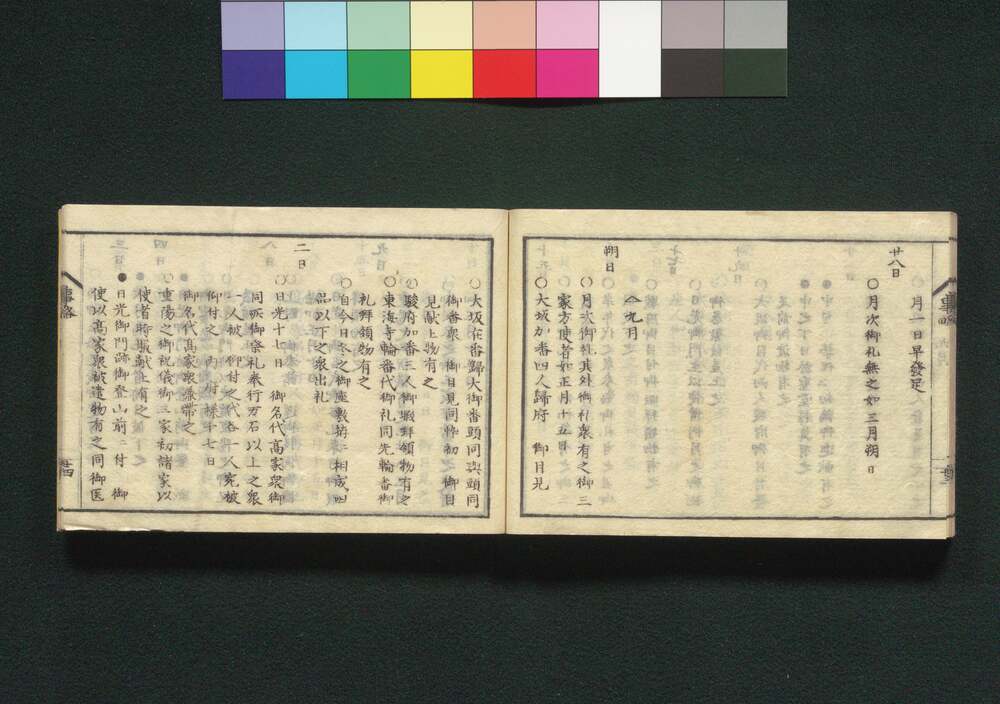 ○月一日早發足
廿八日
○月次御礼無之如三月朔日
九月
朔日
○月次御礼其外御礼衆有之御三
家方使者如正月十五日
○大坂加番四人歸府 御目見
○大坂在番歸大御番頭同與頭同
御番衆 御目見同忰初 御目
見献上物有之
○駿府加番三人御暇拜領物有之
○東海寺輪番代御礼同先輪番御
礼拜領物有之
○自今日冬之御座敷拵ニ相成四
品以下之衆出礼
二日
○日光十七日 御名代高家衆御
同所御祭礼奉行万石以上之衆
一人被 仰付之代各一人宛被
仰付之 両 付 様 十七日
御名代高家衆 帶之
○重陽之御祝儀御三家初諸家以
使者時服献上有之
●日光御門跡御登山前ニ付 御
使以高家衆被遣物有之同御医